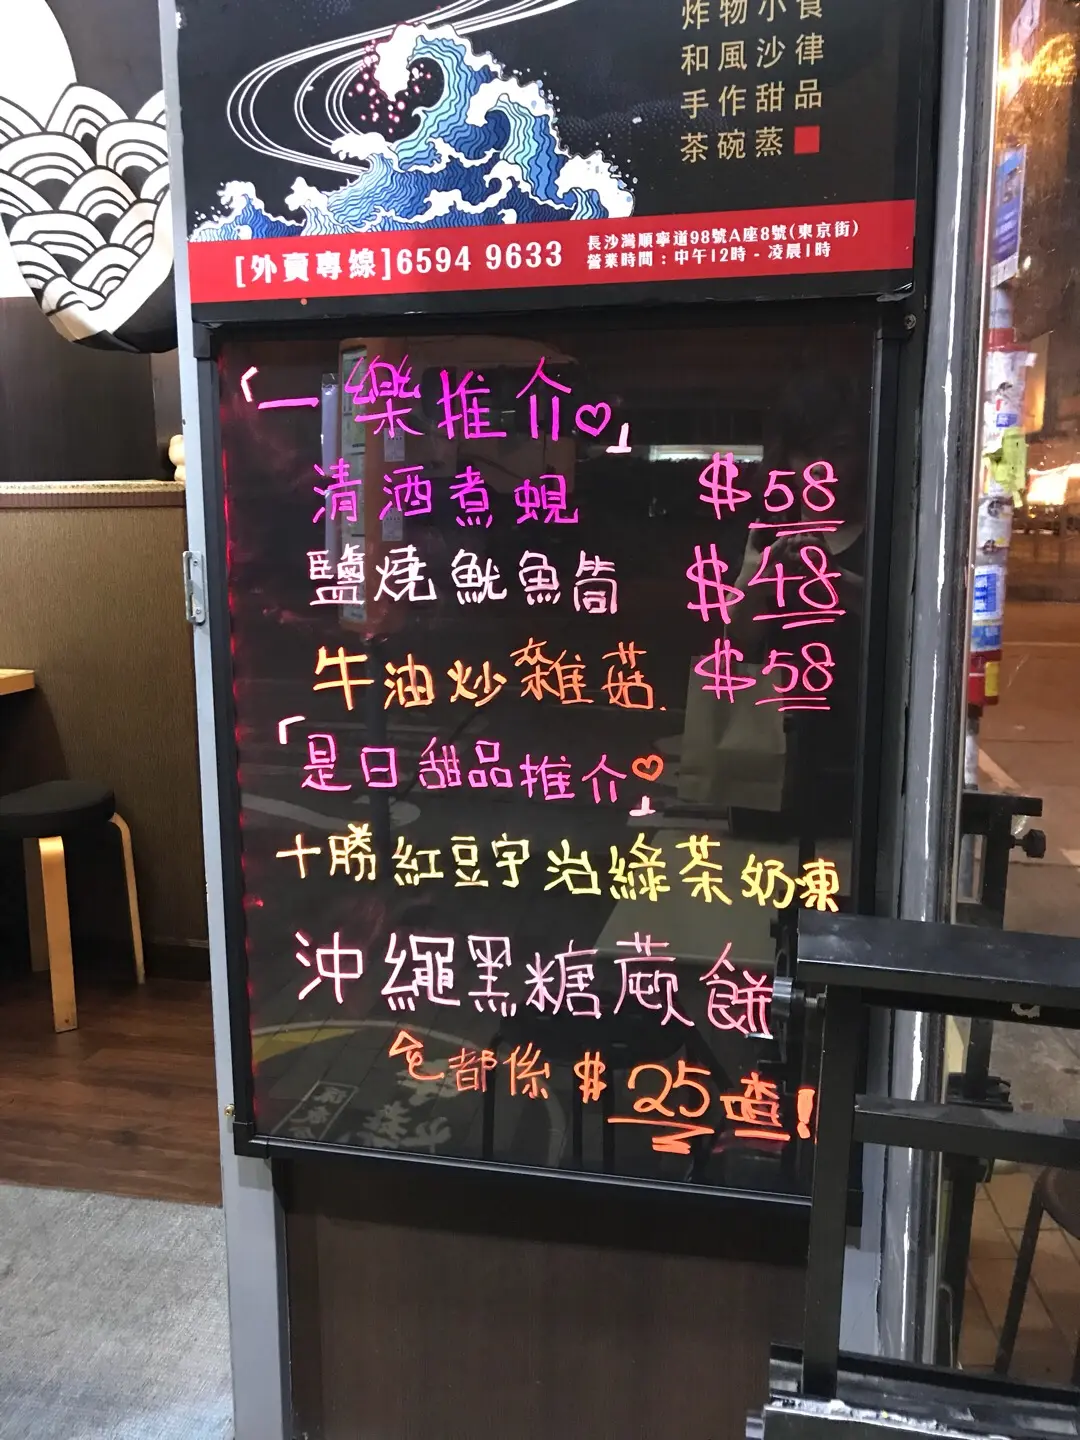 炸物小食
和風沙律
手作甜品
茶碗蒸
[外賣專線]6594 9633
長沙灣順寧道98號A座8號(東京街)
營業時間：中午12時 - 凌晨1時
「一樂推介♡」
清酒煮蜆 $58
鹽燒魷魚筒 $48
牛油炒雜菇. $58
「是日甜品推介♡」
十勝紅豆宇治綠茶奶凍
沖繩黑糖蕨餅
都係 $25 喳!